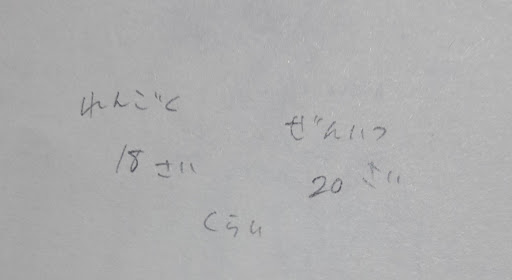 れんごく
ぜんいつ
18さい
20さい
くらい